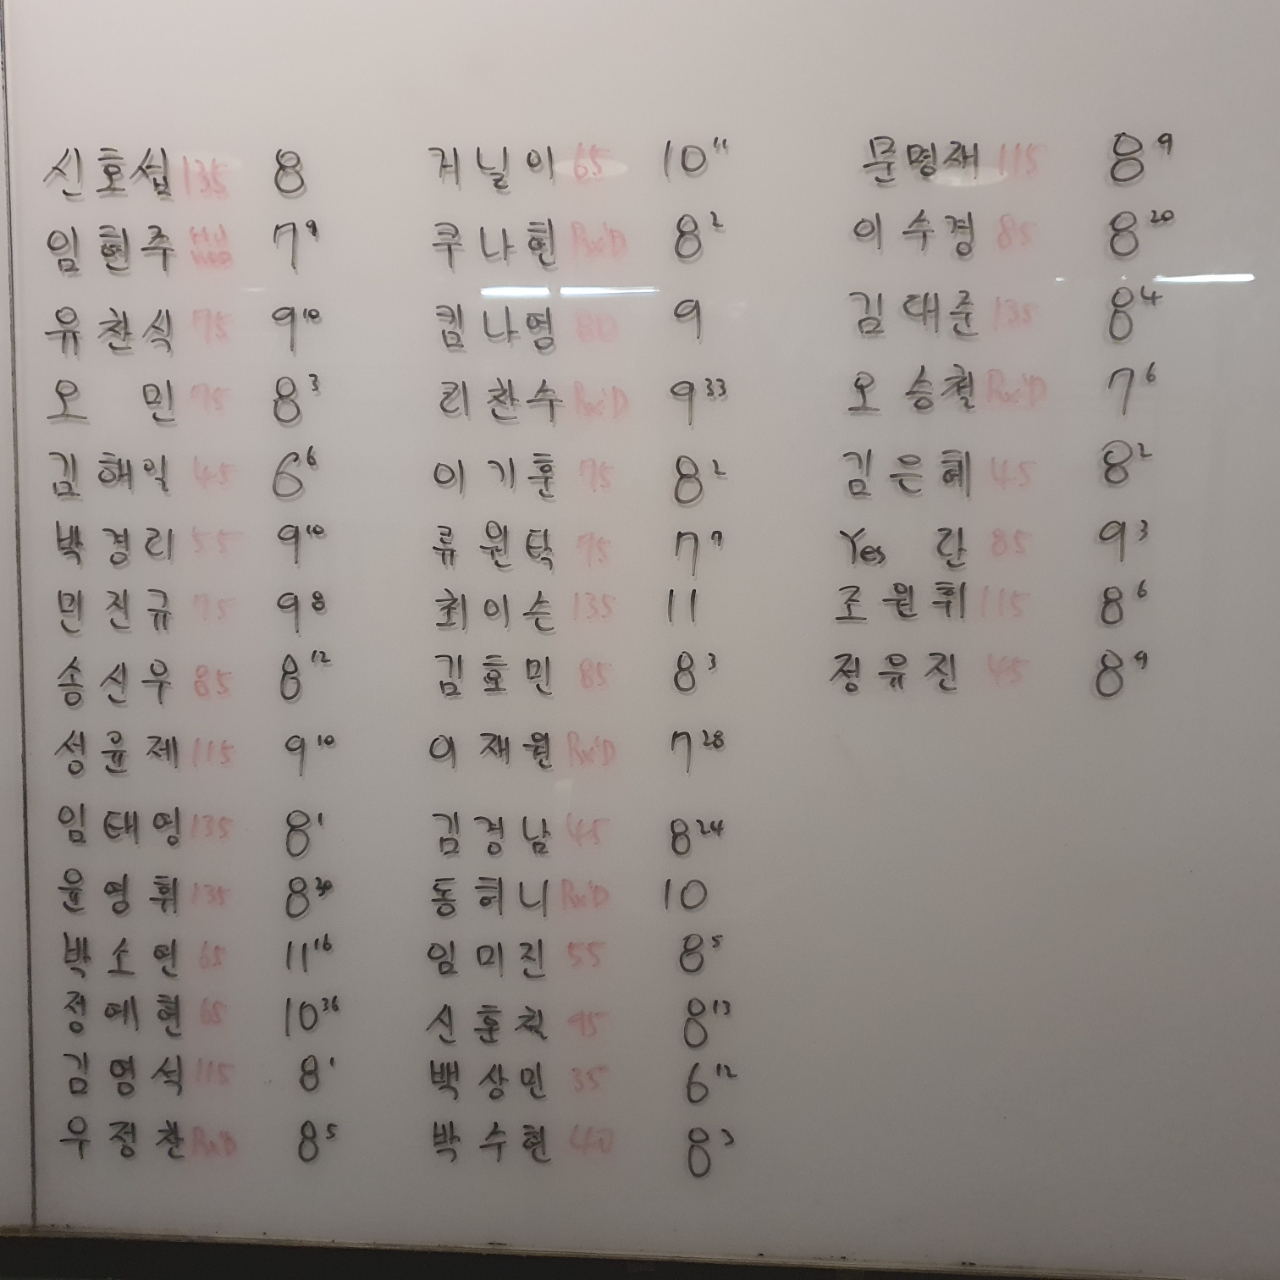 신호섭 135 8
임현주 7⁹
유찬식 75 9¹⁰
오 민 75 8³
김해일 45 6⁶
박경리 55 9¹⁰
민진규 75 9⁸
송신우 85 8¹²
성윤제 115 9¹⁰
임태영 135 8¹
윤영휘 135 8³⁰
박소연 65 11¹⁶
정예현 65 10³⁶
김영석 115 8¹
우정찬 Rx'D 8⁵
겨닐이 65 10¹¹
쿠나현 Rx'D 8²
킴나영 80 9
리찬수 Rx'D 9³³
이기훈 75 8²
류원탁 75 7⁹
최이슨 135 11
김호민 85 8³
이재원 Rx'D 7²⁸
김경남 45 8²⁴
동혀니 Rx'D 10
임미진 55 8⁵
신훈철 95 8¹³
백상민 35 6¹²
박수현 40 8³
문명재 115 8⁹
이수경 85 8²⁰
김대준 135 8⁴
오승철 Rx'D 7⁶
김은혜 45 8²
Yes 란 85 9³
조원휘 115 8⁶
정유진 45 8⁹